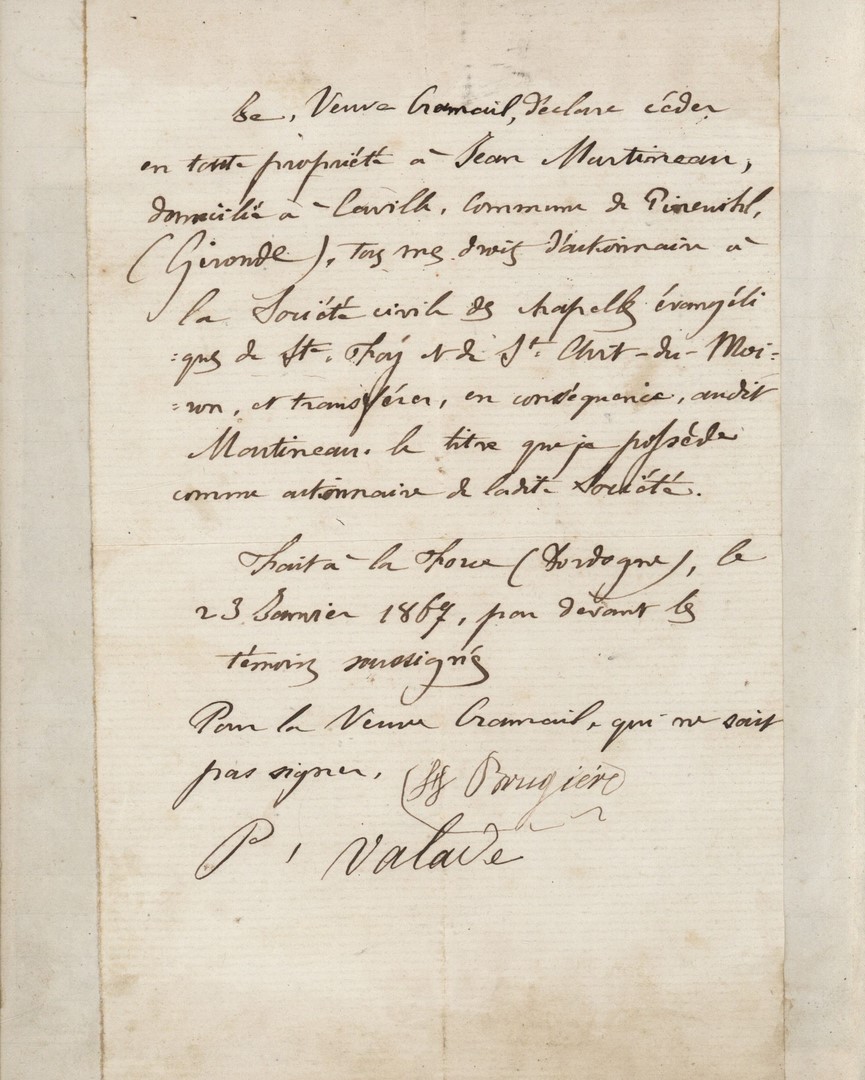 Je, Veuve Cramail, déclare céder
en toute propriété à Jean Martineau,
domicilié à Laville, commune de Pineuilh,
(Gironde), tous mes droits d'actionnaire à
la Société civile des chapelles évangéli
=ques de Ste. Foy et de St. Avit-du-Moi=
=ron, et transférer, en conséquence, audit
Martineau. le titre que je possède
comme actionnaire de ladite Société.
Fait à la Force (Dordogne), le
23 Janvier 1867, par devant les
témoins soussignés
Pour la Veuve Cramail, qui ne sait
pas signer,
Brugière
P, Valade